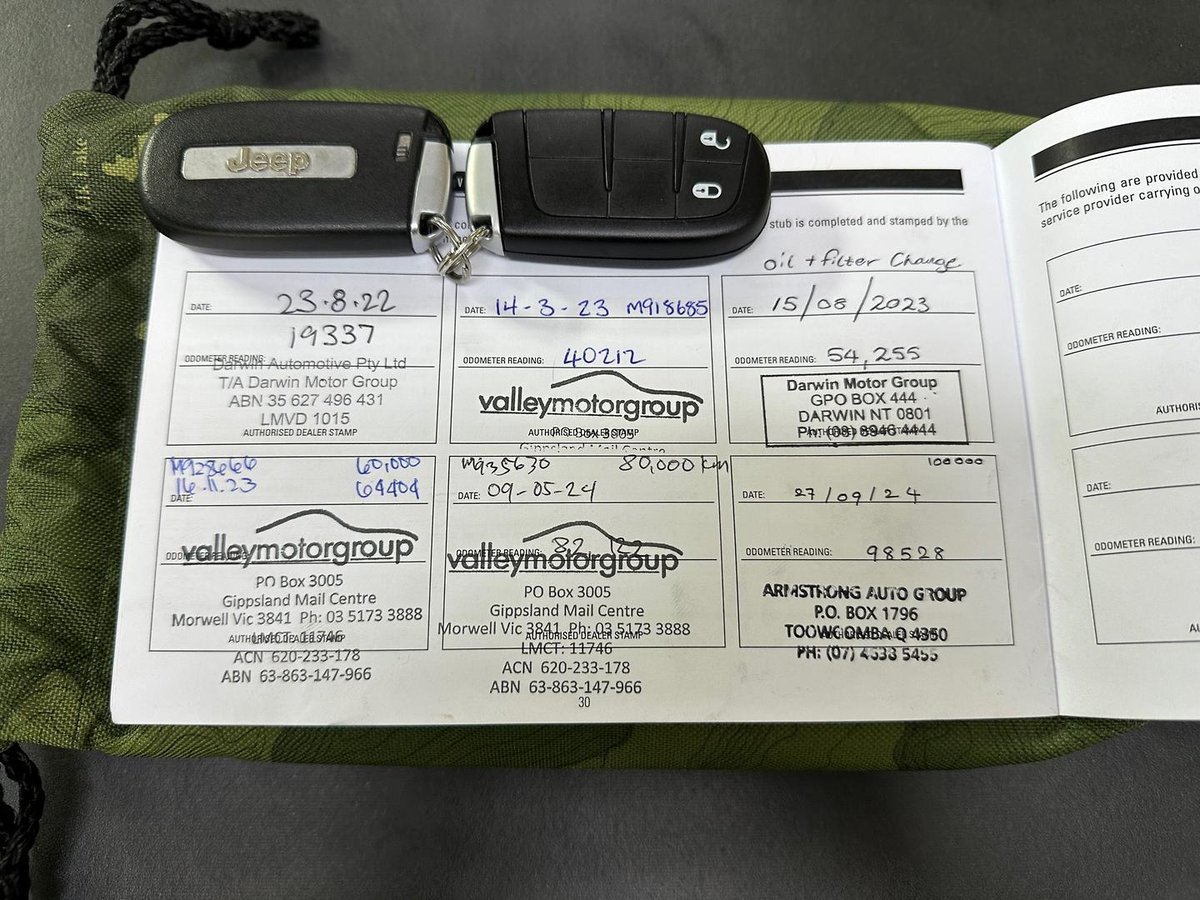 Jeep
stub is completed and stamped by the
oil + filter Change
DATE: 23.8.22
19337
ODOMETER READING:
Darwin Automotive Pty Ltd
T/A Darwin Motor Group
ABN 35 627 496 431
LMVD 1015
AUTHORISED DEALER STAMP
DATE: 14-3-23 M918685
ODOMETER READING: 40212
valleymotorgroup
PO Box 3005
AUTHORISED DEALER STAMP
Gippsland Mail Centre
DATE: 15/08/2023
ODOMETER READING: 54,255
Darwin Motor Group
GPO BOX 444
DARWIN NT 0801
Ph: (08) 8946 4444
M928666 60,000
16.11.23 64404
DATE:
ODOMETER READING:
valleymotorgroup
PO Box 3005
Gippsland Mail Centre
Morwell Vic 3841 Ph: 03 5173 3888
AUTHORISED DEALER STAMP
LMCT: 11746
ACN 620-233-178
ABN 63-863-147-966
M935630 80,000 km
DATE: 09-05-24
ODOMETER READING:
valleymotorgroup
PO Box 3005
Gippsland Mail Centre
Morwell Vic 3841 Ph: 03 5173 3888
AUTHORISED DEALER STAMP
LMCT: 11746
ACN 620-233-178
ABN 63-863-147-966
100000
DATE: 27/09/24
ODOMETER READING: 98528
ARMSTRONG AUTO GROUP
P.O. BOX 1796
TOOWOOMBA Q 4350
PH: (07) 4633 5455
30
The following are provided
service provider carrying
DATE:
ODOMETER READING:
DATE:
ODOMETER READING: